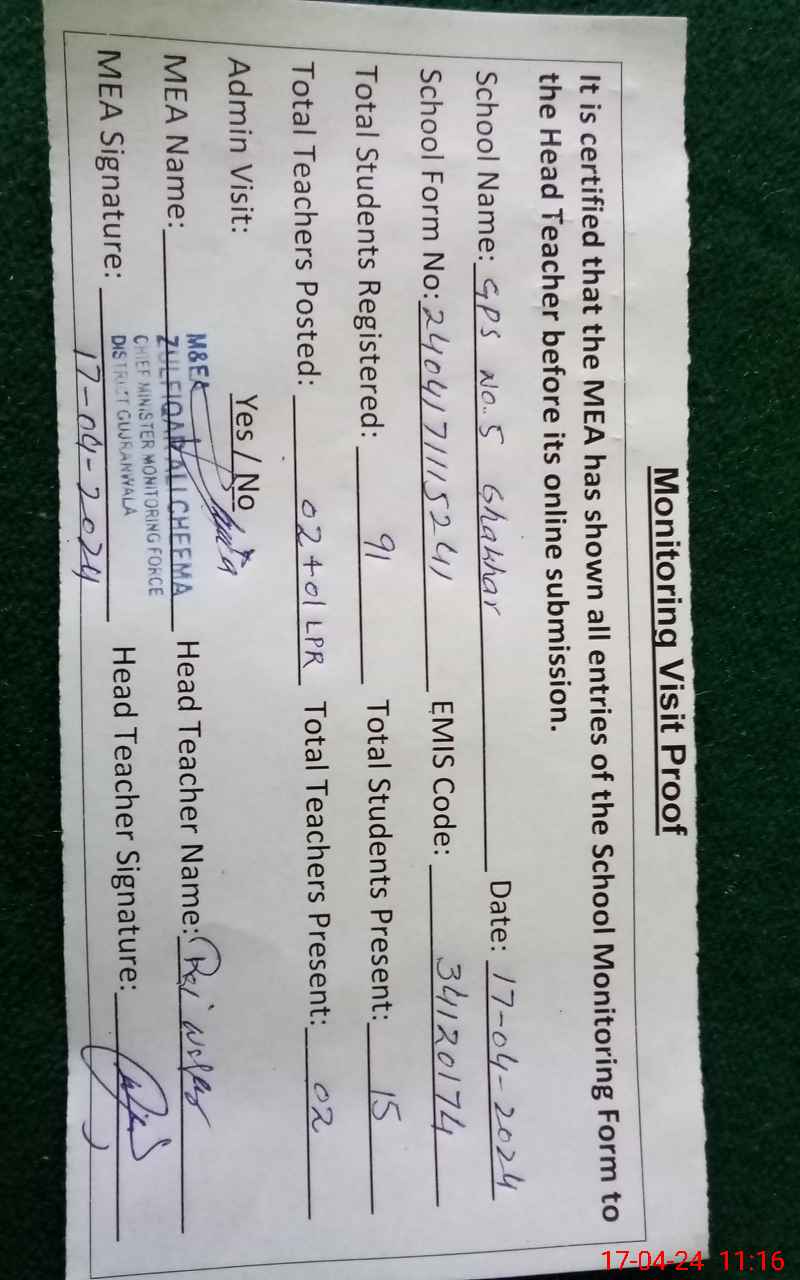 Monitoring Visit Proof
It is certified that the MEA has shown all entries of the School Monitoring Form to
the Head Teacher before its online submission.
School Name: GPS No. 5 Ghakhar Date: 17-04-2024
School Form No: 2404171115241 EMIS Code: 34120174
Total Students Registered: 91 Total Students Present: 15
Total Teachers Posted: 02+01 LPR Total Teachers Present: 02
Admin Visit: Yes / No
M&EA
MEA Name: ZULFIQAR ALI CHEEMA Head Teacher Name:
CHIEF MINISTER MONITORING FORCE
DISTRICT GUJRANWALA
MEA Signature: 17-04-2024 Head Teacher Signature:
17-04-24 11:16